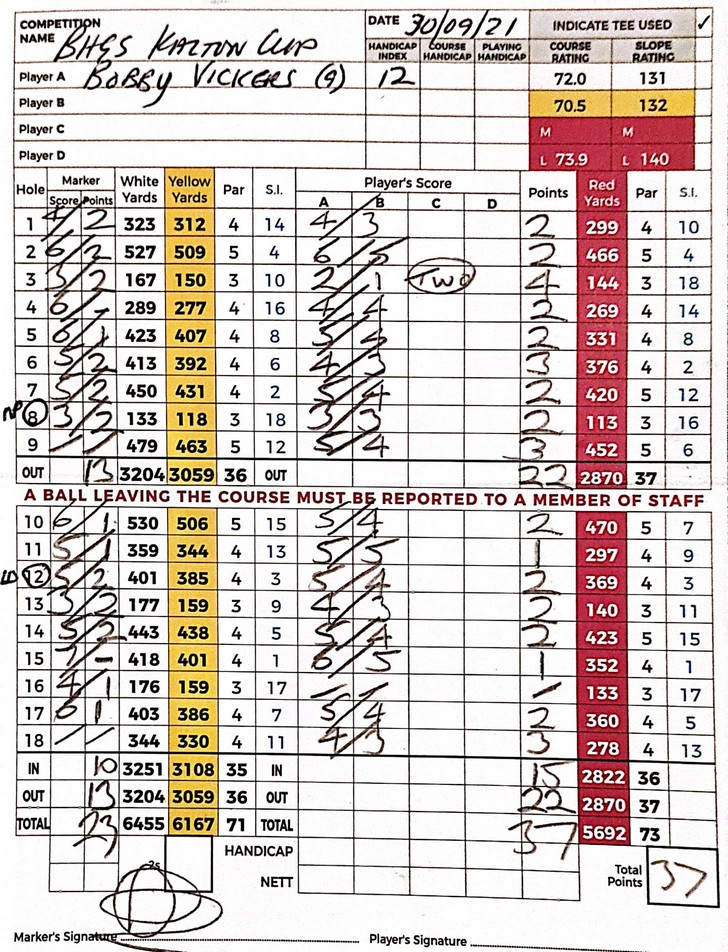 COMPETITION NAME BHGS KALTON CUP DATE 30/09/21 INDICATE TEE USED ✓
HANDICAP INDEX COURSE HANDICAP PLAYING HANDICAP COURSE RATING SLOPE RATING
Player A BOBBY VICKERS (9) 12 72.0 131
Player B 70.5 132
Player C M M
Player D L 73.9 L 140
Hole Marker White Yards Yellow Yards Par S.I. Player's Score Points Red Yards Par S.I.
Score Points A B C D
1 4/2 323 312 4 14 4/3 2 299 4 10
2 6/2 527 509 5 4 6/5 2 466 5 4
3 3/2 167 150 3 10 2/1 TWO 4 144 3 18
4 6/- 289 277 4 16 4/4 2 269 4 14
5 6/1 423 407 4 8 5/4 2 331 4 8
6 5/2 413 392 4 6 4/3 3 376 4 2
7 5/2 450 431 4 2 5/4 2 420 5 12
NP 8 3/2 133 118 3 18 3/3 2 113 3 16
9 / / 479 463 5 12 5/4 3 452 5 6
OUT 13 3204 3059 36 OUT 22 2870 37
A BALL LEAVING THE COURSE MUST BE REPORTED TO A MEMBER OF STAFF
10 6/1 530 506 5 15 5/4 2 470 5 7
11 5/1 359 344 4 13 5/5 1 297 4 9
12 5/2 401 385 4 3 5/4 2 369 4 3
13 3/2 177 159 3 9 4/3 2 140 3 11
14 5/2 443 438 4 5 5/4 2 423 5 15
15 7/- 418 401 4 1 6/5 1 352 4 1
16 4/1 176 159 3 17 / / / 133 3 17
17 6 1 403 386 4 7 5/4 2 360 4 5
18 / / 344 330 4 11 4/3 3 278 4 13
IN 10 3251 3108 35 IN 15 2822 36
OUT 13 3204 3059 36 OUT 22 2870 37
TOTAL 23 6455 6167 71 TOTAL 37 5692 73
HANDICAP
2s NETT Total Points 37
Marker's Signature Player's Signature